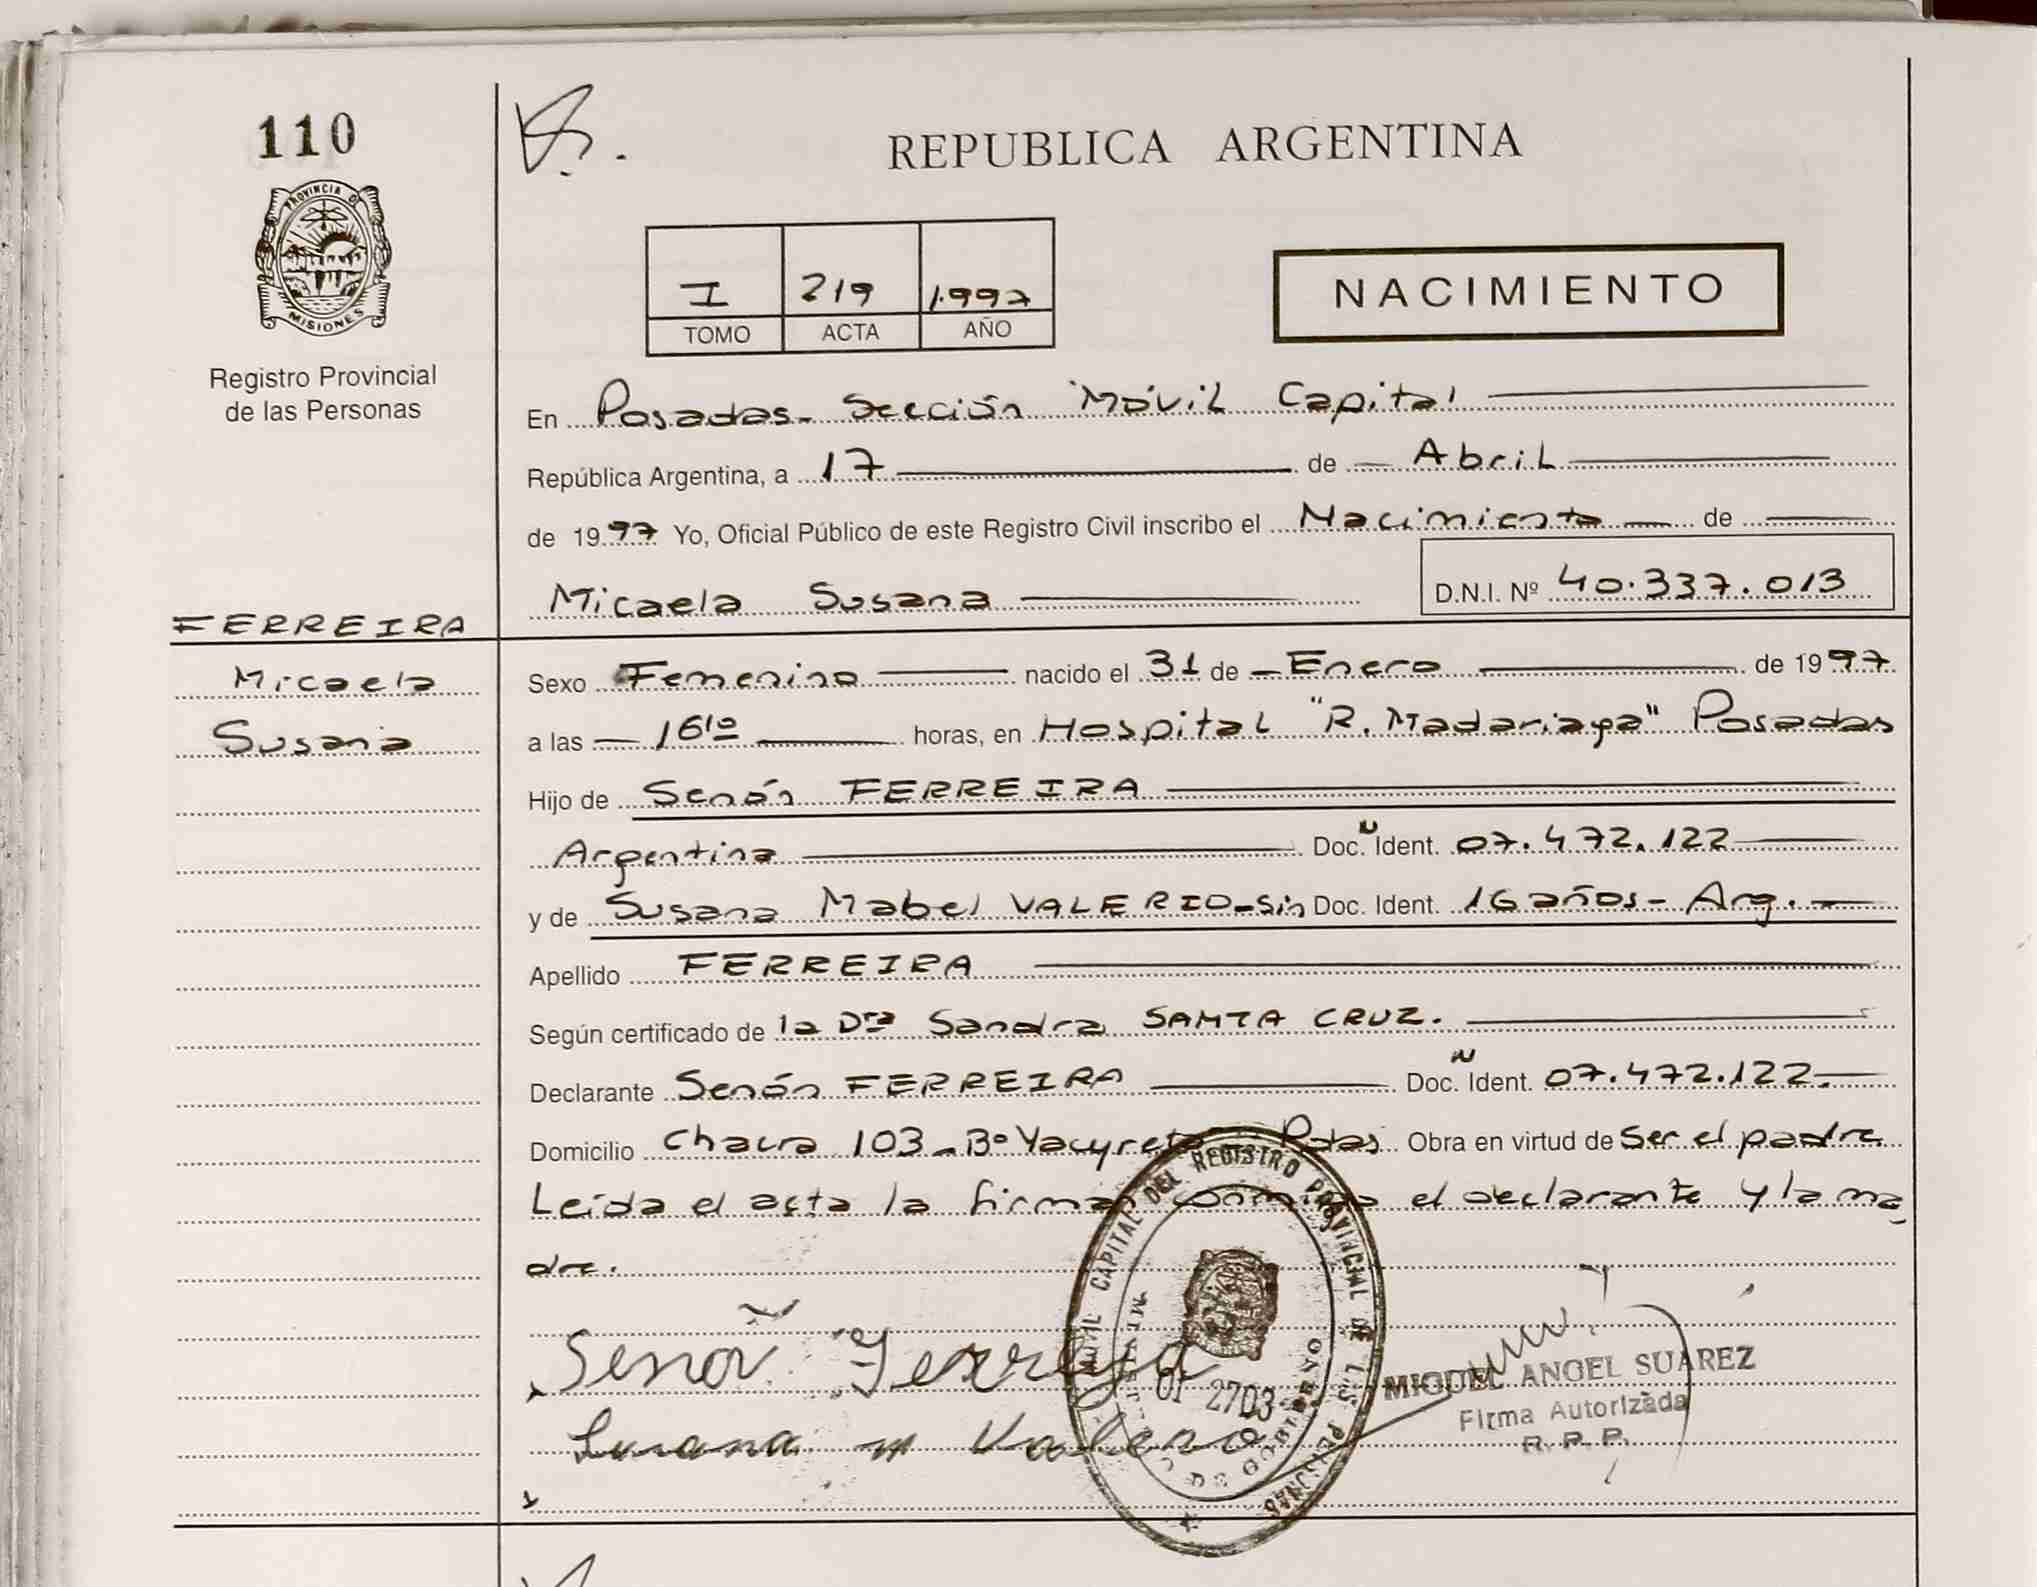 110
PROVINCIA DE
MISIONES
Registro Provincial
de las Personas
REPUBLICA ARGENTINA
I 219 1.997
TOMO ACTA AÑO
NACIMIENTO
En Posadas- Sección Móvil Capital
República Argentina, a 17 de Abril
de 1997 Yo, Oficial Público de este Registro Civil inscribo el Nacimiento de
Micaela Susana D.N.I. Nº 40.337.013
FERREIRA
Micaela
Susana
Sexo Femenino nacido el 31 de Enero de 1997
a las 16 10 horas, en Hospital "R. Madariaga" Posadas
Hijo de Senón FERREIRA
Argentina Doc. Ident. 07.472.122
y de Susana Mabel VALERIO-Sin Doc. Ident. 16 años- Arg.
Apellido FERREIRA
Según certificado de la Dra Sandra SANTA CRUZ.
Declarante Senón FERREIRA Doc. Ident. 07.472.122.
Domicilio Chacra 103-Bº Yacyretá Pdas Obra en virtud de Ser el padre
Leída el acta la firman conmigo el declarante y la ma
dre.
Senón Ferreyra
Susana M Valerio
MOVIL CAPITAL DEL REGISTRO PROVINCIAL DE LAS PERSONAS
2703
MIGUEL ANGEL SUAREZ
Firma Autorizada
R. P. P.